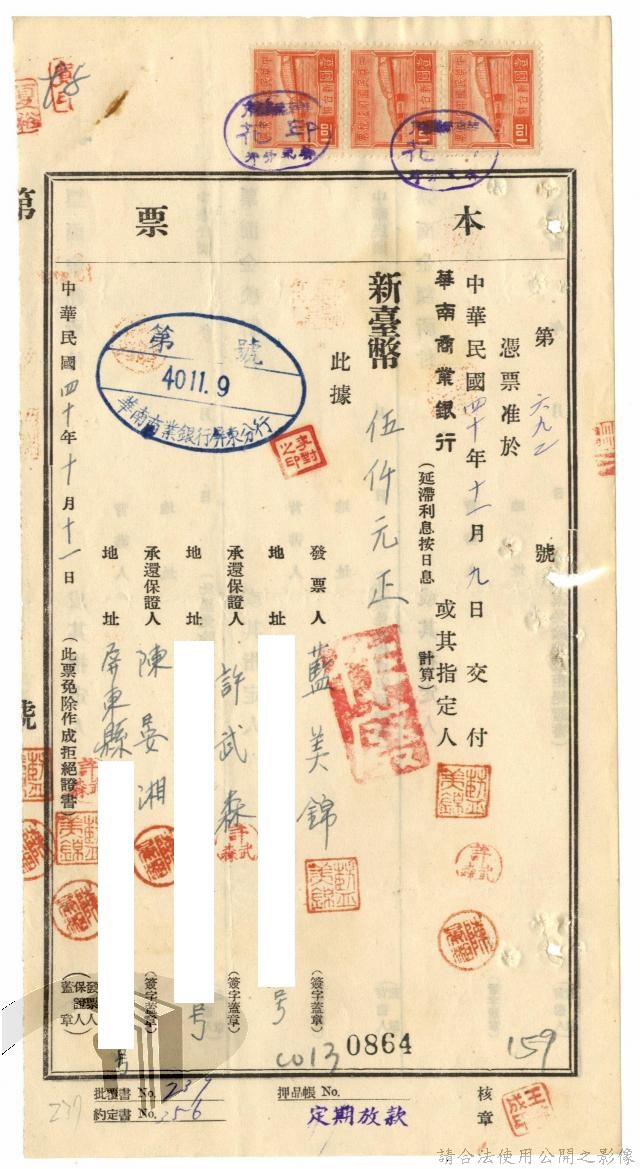 本票
第六九二號
憑票准於
中華民國四十年十一月九日交付
華南商業銀行 或其指定人
(延滯利息按日息 計算)
新臺幣 伍仟元正
此據
發票人 藍美錦 (簽字蓋章)
地址 号
承還保證人 許武森 (簽字蓋章)
地址 号
承還保證人 陳晏湘 (簽字蓋章)
地址 屏東縣 号
中華民國四十年十月十一日
(此票免除作成拒絕證書)
發票人
保證人
蓋章
第 號
40.11.9
華南商業銀行屏東分行
李對之印
印花
壹圓
1.00
第
號
0864
159
批覆書 No. 237
約定書 No. 256
押品帳 No.
定期放款
核章
237
請合法使用公開之影像